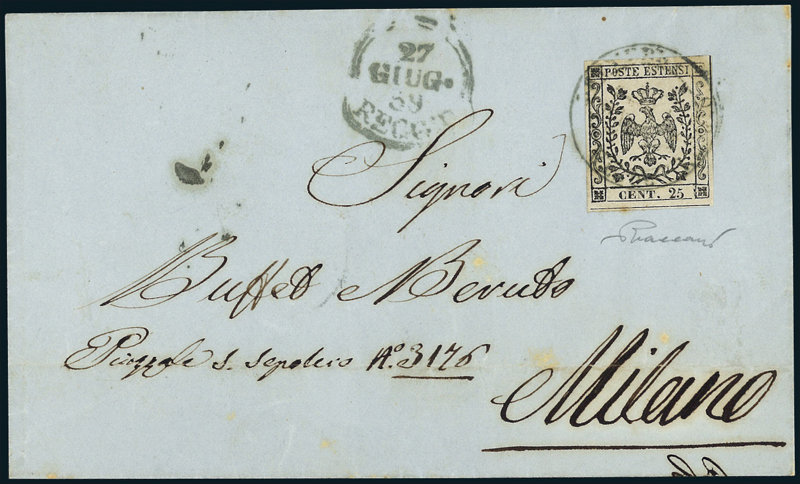 27
GIUG.
59
REGGIO
POSTE ESTENSI
CENT. 25
Signori
Buffet e Beruto
Piazzale S. Sepolcro N.º 3176
Milano